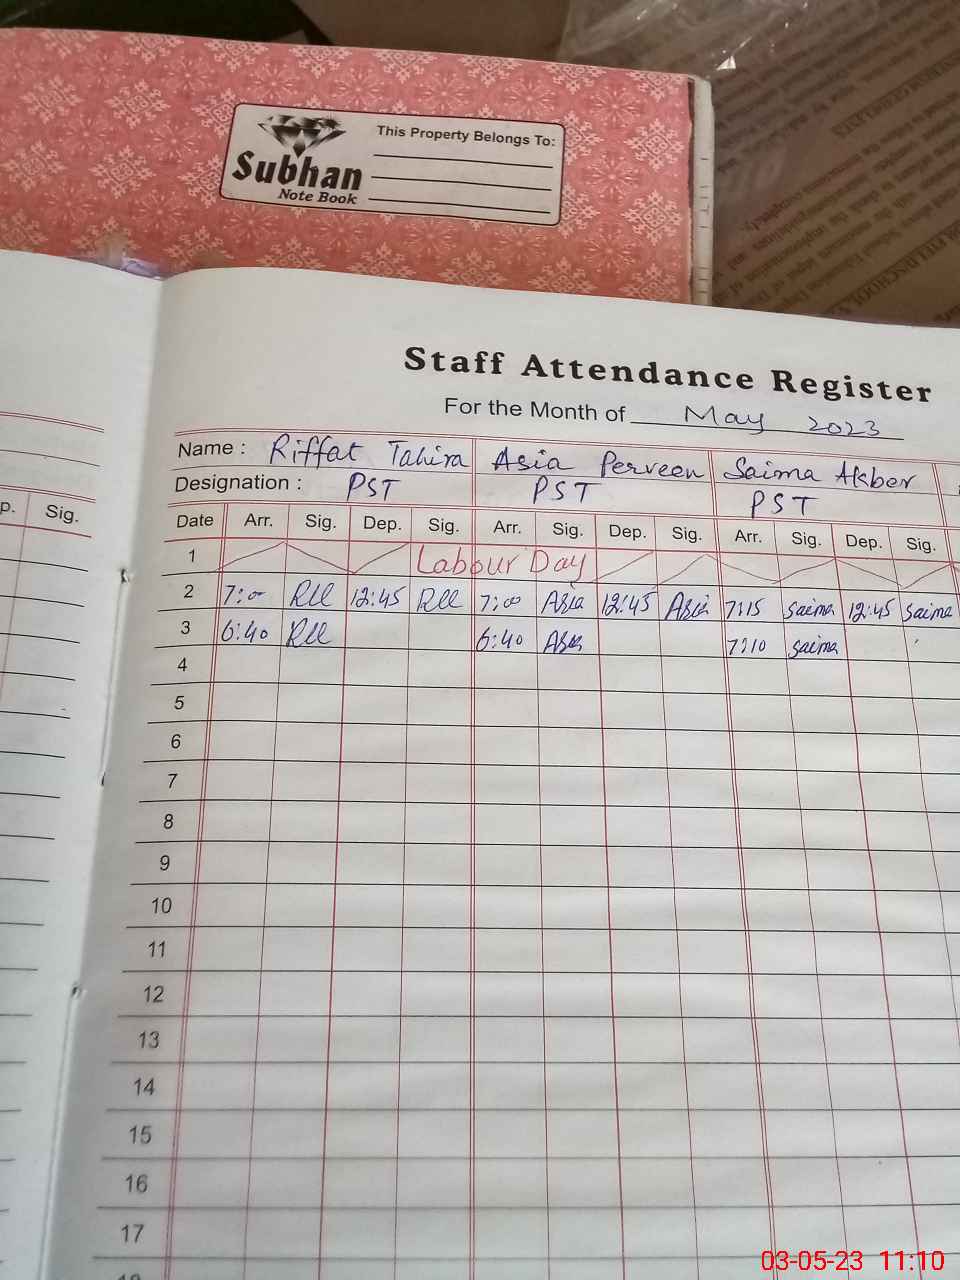 This Property Belongs To:
Subhan
Note Book
Staff Attendance Register
For the Month of May 2023
Name : Riffat Tahira Asia Perveen Saima Akber
Designation : PST PST PST
p. Sig.
Date Arr. Sig. Dep. Sig. Arr. Sig. Dep. Sig. Arr. Sig. Dep. Sig.
1 Labour Day
2 7:00 12:45 7:00 Asia 12:45 Asia 7:15 Saima 12:45 Saima
3 6:40 6:40 Asia 7:10 Saima
4
5
6
7
8
9
10
11
12
13
14
15
16
17
18
03-05-23 11:10